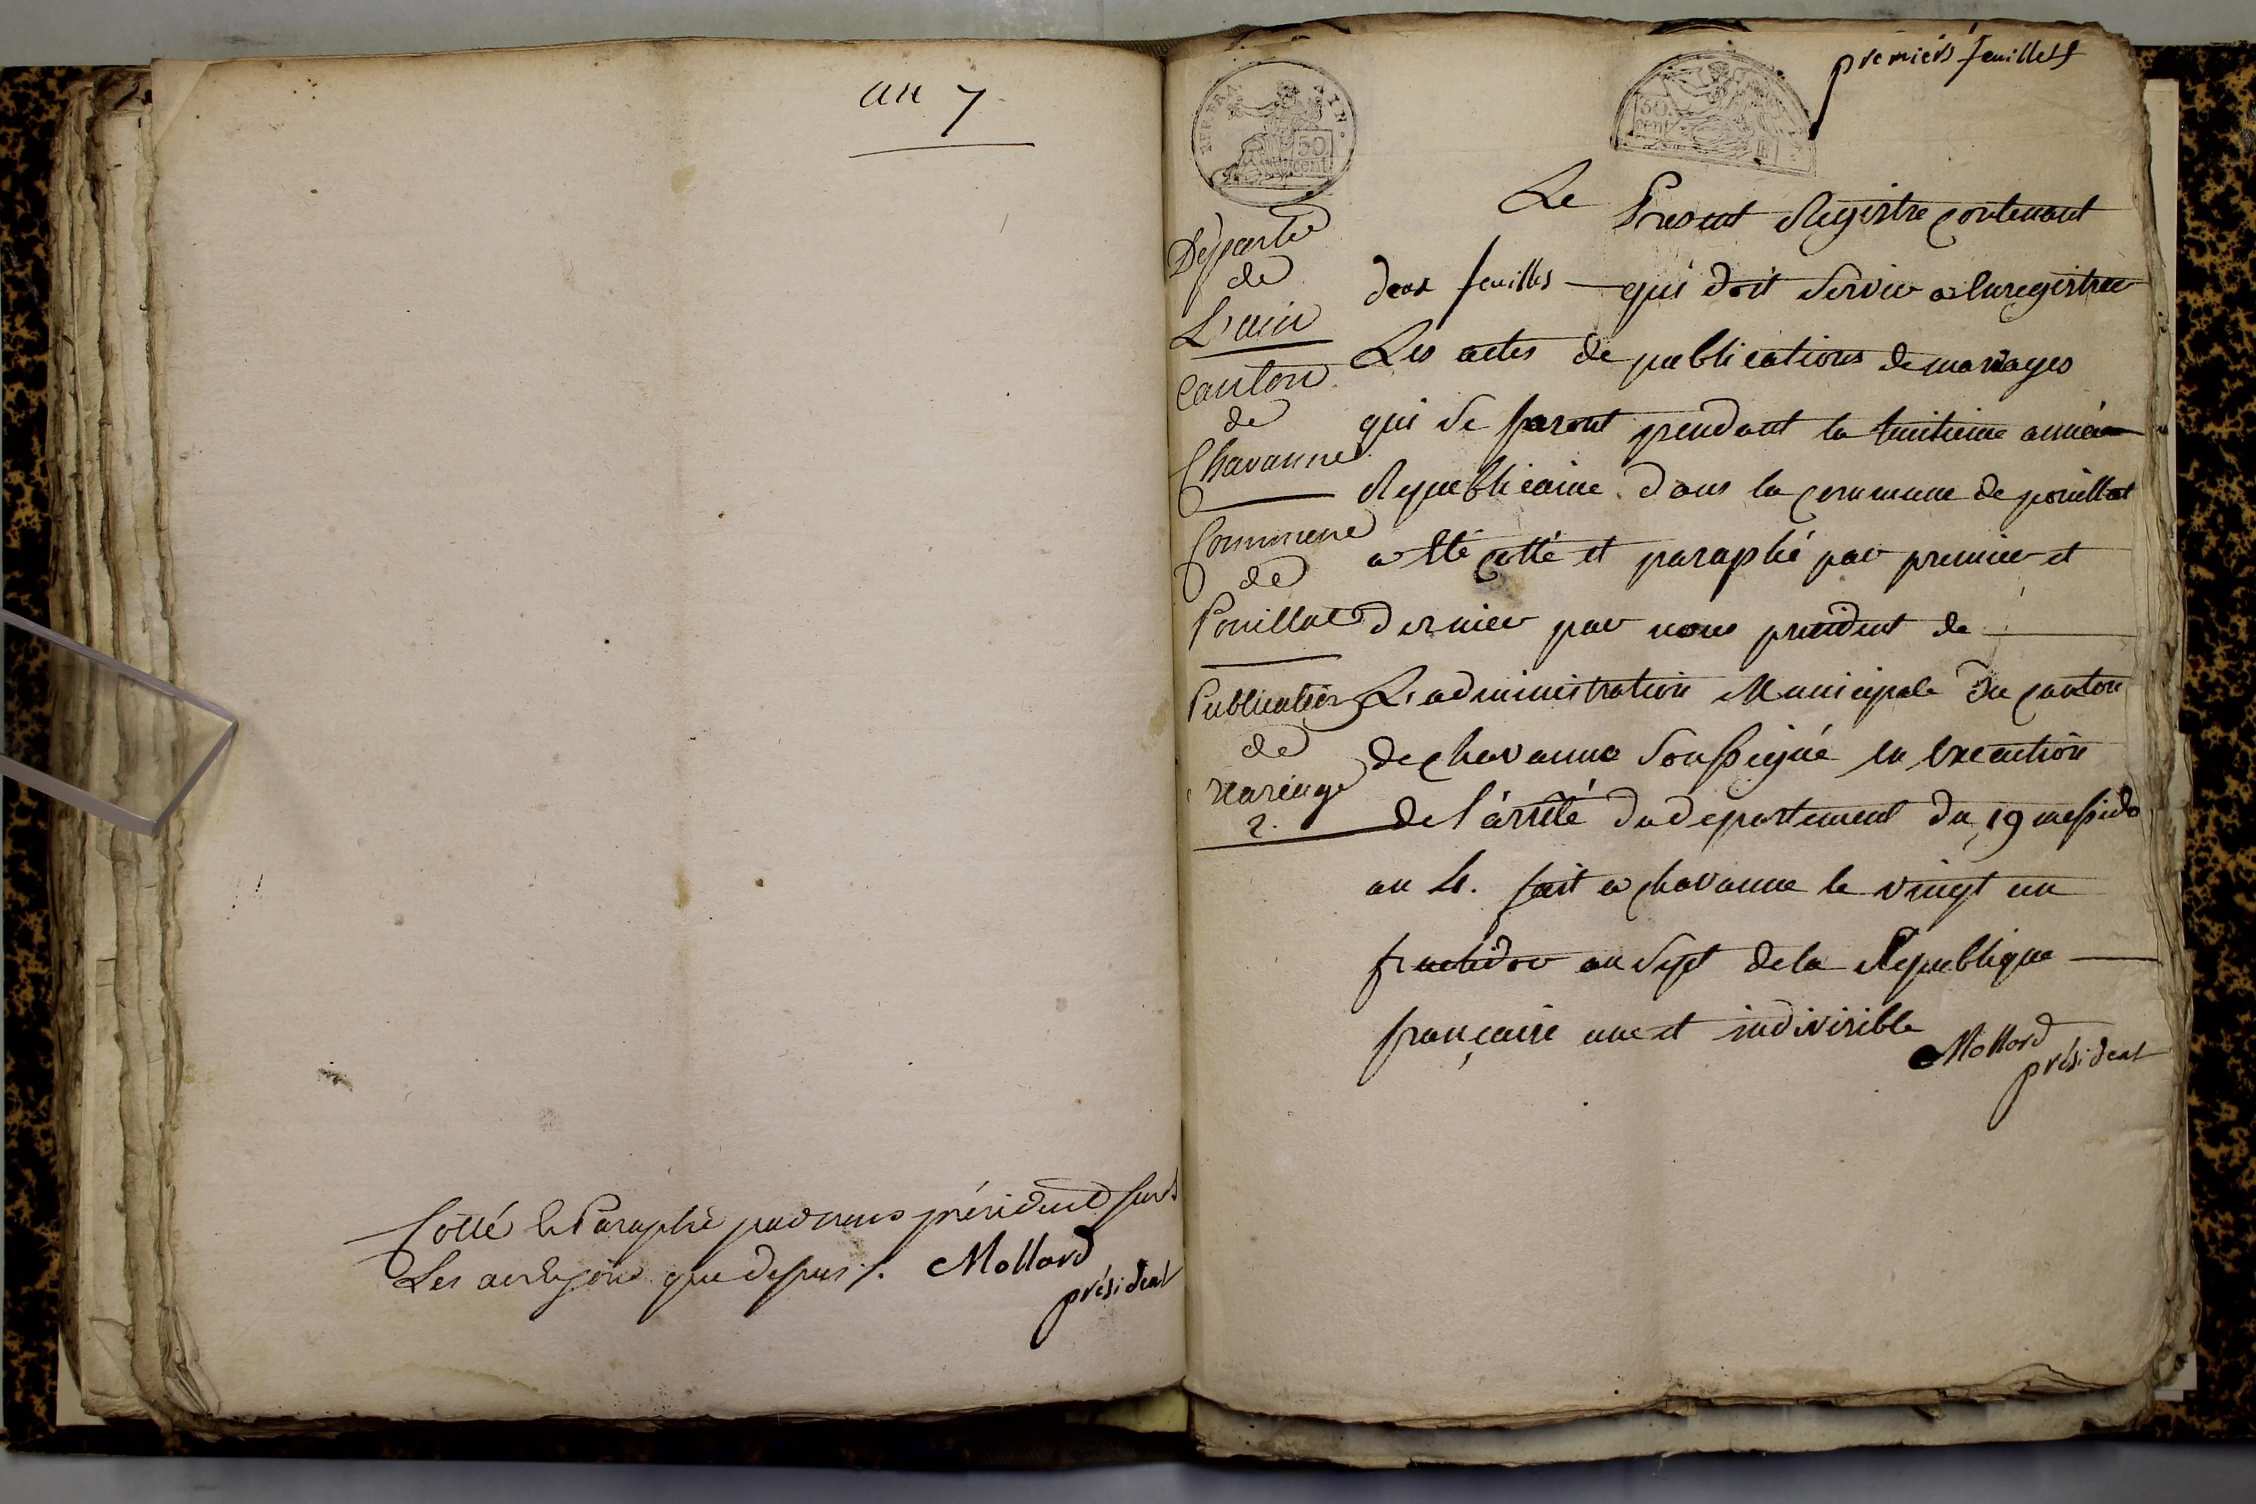 an 7
Cotté & Paraphé par nous président sur
Les an que dessus /. Mollard
président
premiers feuillets
REP. FRA.
50.
cent.
50.
cent
Departe
de
L'ain
Canton
de
Chavanne
Commune
de
Pouillat
Publication
de
Mariage
2.
Le Present Registre contenant
deux feuilles — qui doit Servir a Enregistrer
Les actes de publications de mariages
qui Se feront pendant la huitieme année
Republicaine dans la commune de pouillat
a Eté cotté et paraphé par premier et
dernier par nous president de
L'administration Municipale du canton
de chavanne Soussigné en Execution
de l'arrêté du departement du 19 messido
an 4. fait a chavanne le vingt un
fructidor an Sept de la Republique
française une et indivisible
Mollard
président